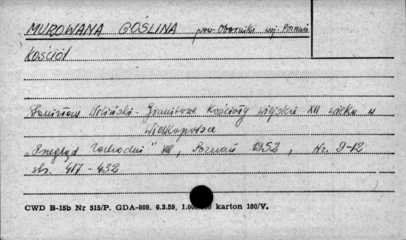 MUROWANA GOŚLINA pow. Oborniki woj. Poznań
Kościół
Stanisław Wiliński - Granitowe kościoły wiejskie XII wieku w
Wielkopolsce
"Przegląd Zachodni" VIII, Poznań 1952, Nr. 9-12
str. 417-432
CWD B-15b Nr 515/P. GDA-809. 6.3.59, 1.000.000 karton 180/V.